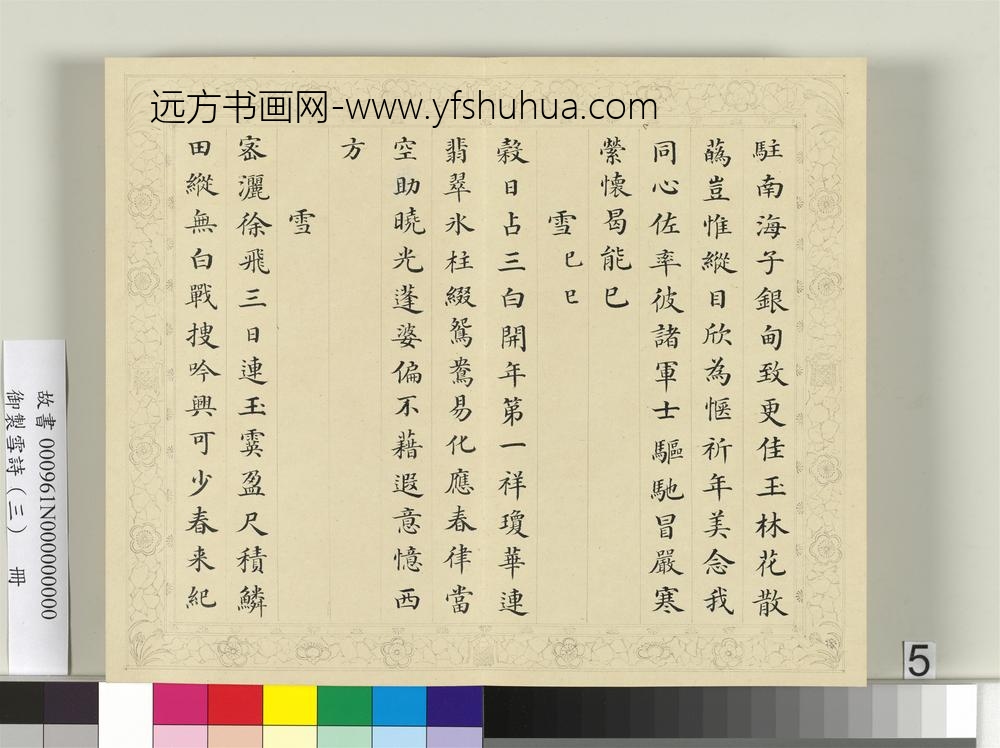 远方书画网-www.yfshuhua.com
駐南海子銀甸致更佳玉林花散
蘤豈惟縱日欣為愜祈年美念我
同心佐率彼諸軍士驅馳冒嚴寒
縈懷曷能已
雪 己巳
穀日占三白開年第一祥瓊華連
翡翠氷柱綴鴛鴦易化應春律當
空助曉光蓬婆偏不藉遐意憶西
方
雪
密灑徐飛三日連玉霙盈尺積鱗
田縱無白戰捜吟興可少春来紀
故書 000961N000000000
御製雪詩(三) 冊
5